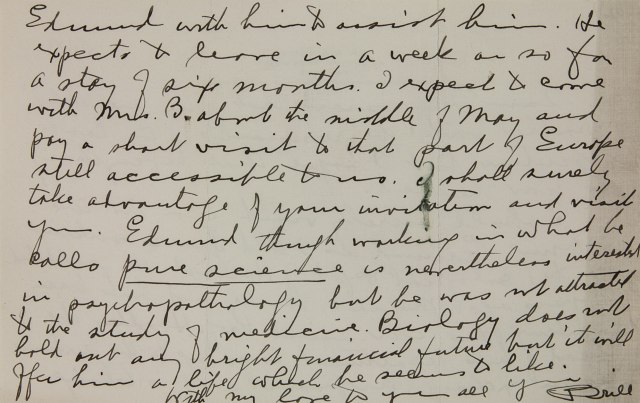 Edmund with him to assist him. He
expects to leave in a week or so for
a stay of six months. I expect to come
with Mrs. B. about the middle of May and
pay a short visit to that part of Europe
still accessible to us. I shall surely
take advantage of your invitation and visit
you. Edmund though working in what he
calls pure science is nevertheless interested
in psychopathology but he was not attracted
to the study of medicine. Biology does not
hold out any bright financial future but it will
offer him a life which he seems to like.
With my love to you all
Brill